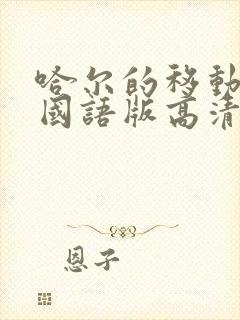 哈尔的移動
國語版高清
恩子